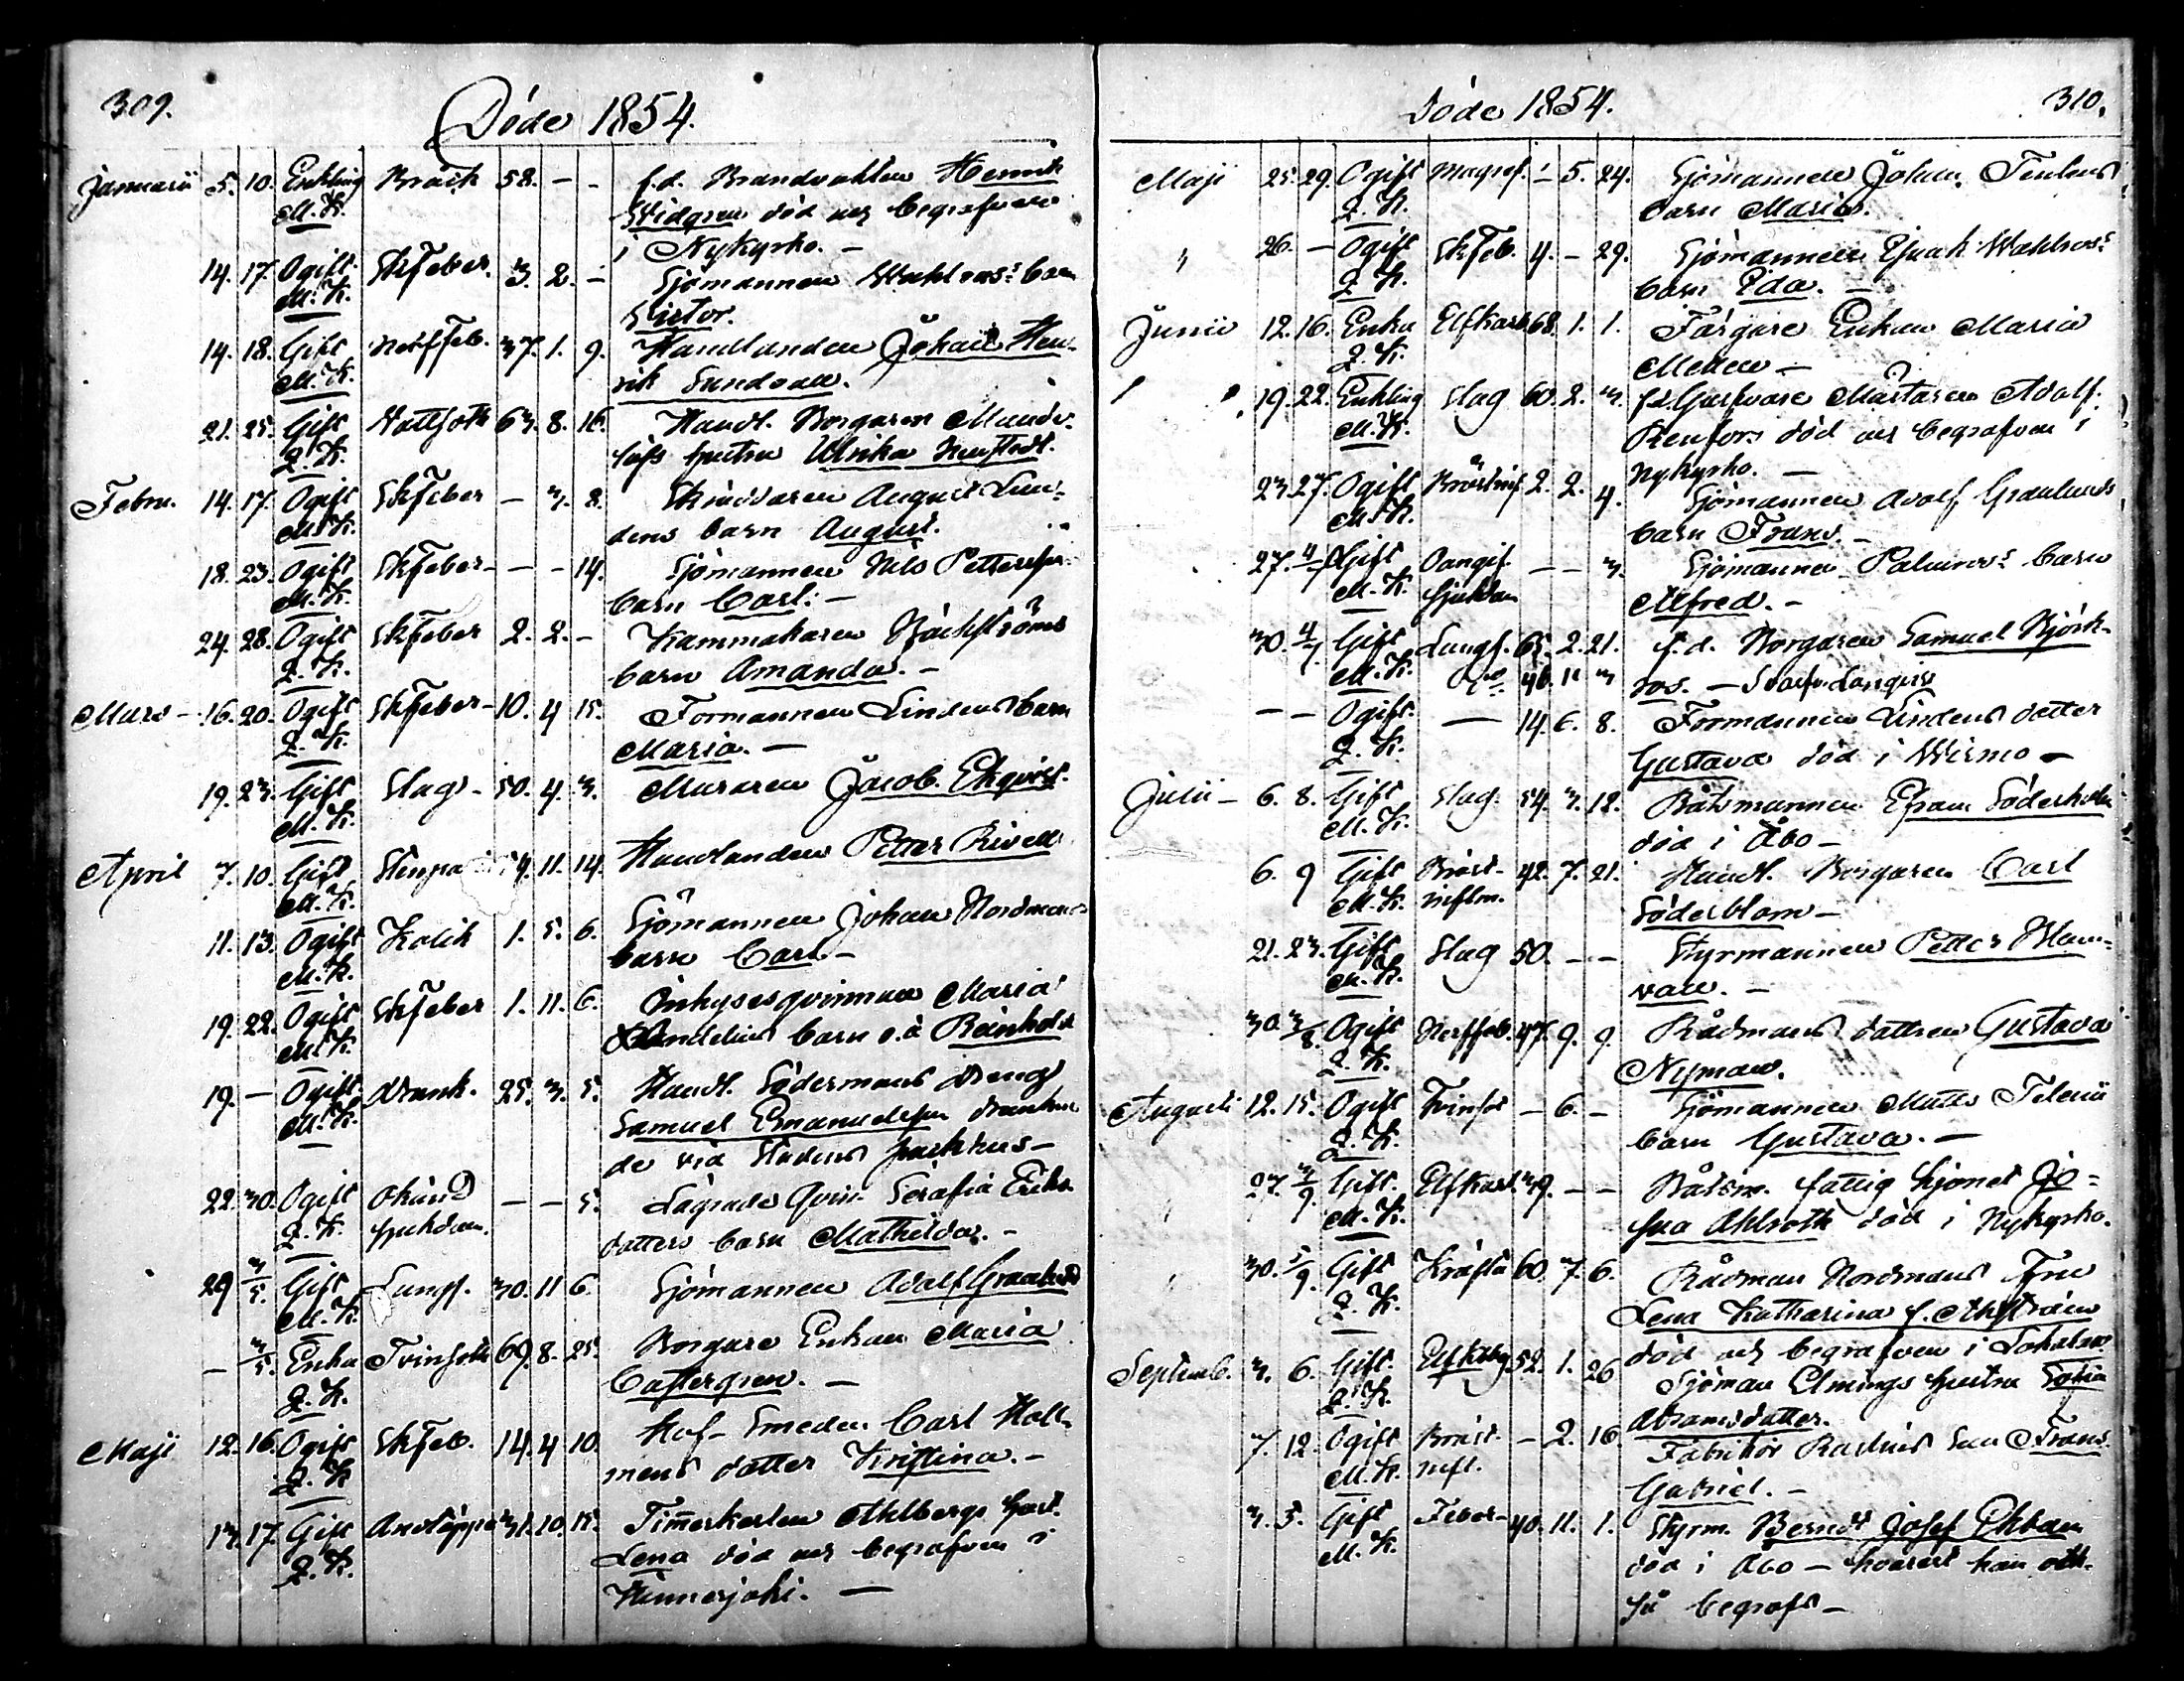 309.
Döde 1854.
Januarii 5. 10. Enkling Bråck 58. - - f.d. Brandvakten Henrik
M. K. Widgren död och begrafven
i Nykyrko. -
14. 17. Ogift Skfeber. 3. 2. - Sjömannen Wahlroos barn
M. K. Victor.
14. 18. Gift Nerffeb. 37. 1. 9. Handlanden Johan Hen-
M. K. rik Sundvall.
21. 25. Gift 63. 8. 16. Handl. Borgaren
Q. K. hustru Ulrika
Febru. 14. 17. Ogift Skfeber - 3. 8. August Lin-
M. K. dens barn August.
18. 23. Ogift Skfeber - - - 14. Sjömannen Nils Petterssons
M. K. barn Carl. -
24. 28. Ogift Skfeber 2. 2. - Kammakaren Bäckströms
Q. K. barn Amanda. -
Mars - 16. 20. Ogift Skfeber - 10. 4 15. Formannen Lindens barn
Q. K. Maria. -
19. 23. Gift Slag - 50. 4. 3. Muraren Jacob Ekqvist.
M. K.
April 7. 10. Gift 4. 11. 14. Handlanden Petter Rivell
M. K.
11. 13. Ogift Kolik 1. 5. 6. Sjömannen Johan Nordmans
M. K. barn Carl. -
19. 22. Ogift Skfeber 1. 11. 6. Inhysesqvinnan Maria
M. K. barn o.ä Reinhold
19. - Ogift Drunk. 25. 3. 5. Handl. Södermans dreng
M. K. Samuel Emanuelsson drunkna-
de vid Stadens packhus -
22. 30. Ogift Okänd - - 5. Lägrade Qvin. Serafia Eriks
Q. K. sjukdom. dotters barn Mathilda. -
29 3/5. Gift Lungs. 30. 11 6. Sjömannen Adolf Granlund
M. K.
- 3/5. Enka Tvinsott 69. 8. 25. Borgare Enkan Maria
Q. K. Castergren. -
Maji 12. 16. Ogift Skfeb. 14. 4 10. Hof-Smeden Carl Holl-
Q. K. mens dotter Kristina. -
13. 17. Gift Andtäppa 31. 10. 15. Timerkarlen Ahlbergs hust.
Q. K. Lena död och begrafven i
Hinnerjoki. -
310.
Döde 1854.
Maji 25. 29. Ogift Magref. - 5. 24. Sjömannen Johan
Q. K. barn Maria.
" 26. - Ogift Skfeb. 4. - 29. Sjömannen Isaak Wahlroos
Q. K. barn Ida. -
Junii 12. 16. Enka 68. 1. 1. Färgare Enkan Maria
Q. K. Mellen -
" 19. 22. Enkling Slag 60. 2. 3. f.d. Garfvare Mästaren Adolf
M. K. Renfors död och begrafven i
Nykyrko. -
23. 27. Ogift 2. 2. 4. Sjömannen Adolf Granlunds
M. K. barn Frans. -
27. 4/7 Ogift Oangif. - - 3. Sjömannen barn
M. K. sjukdom Alfred. -
30. 4/7. Gift Lungs. 65. 2. 21. f.d. Borgaren Samuel Björk-
M. K. 46. 11 3 roos. -
- - Ogift - 14. 6. 8. Formannen Lindens dotter
Q. K. Gustava död i Wirmo -
Julii - 6. 8. Gift Slag 54. 3. 18. Båtsmannen Efraim Söderholm
M. K. död i Åbo -
6. 9 Gift Bröst- 42. 7. 21. Handl. Borgaren Carl
M. K. inflm. Söderblom -
21. 23. Gift Slag 50. - - Styrmannen Petter
M. K. vall. -
30. 3/8. Ogift Nerffeb. 47. 9. 9. Rådmans dottren Gustava
Q. K. Nyman.
Augusti 12. 15. Ogift Tvinsot - 6. - Sjömannen Matts
Q. K. barn Gustava. -
27. 3/9. Gift 39. - - Båtsm. fattig hjonet Jo-
M. K. sua Ahlroth död i Nykyrko.
30. 5/9. Gift Kräfta 60. 7. 6. Rådman Nordmans Fru
Q. K. Lena Katharina f.
död och begrafven i
Septemb. 3. 6. Gift 52. 1. 26 Sjöman Elmings hustru Sofia
Q. K. Abramsdotter.
7. 12. Ogift Bröst- - 2. 16 Fabrikör son Frans
M. K. infl. Gabriel. -
3. 5. Gift Feber - 40. 11. 1. Styrm. Berndt Josef Ekbom
M. K. död i Åbo - hvarest han ock-
så begrofs -